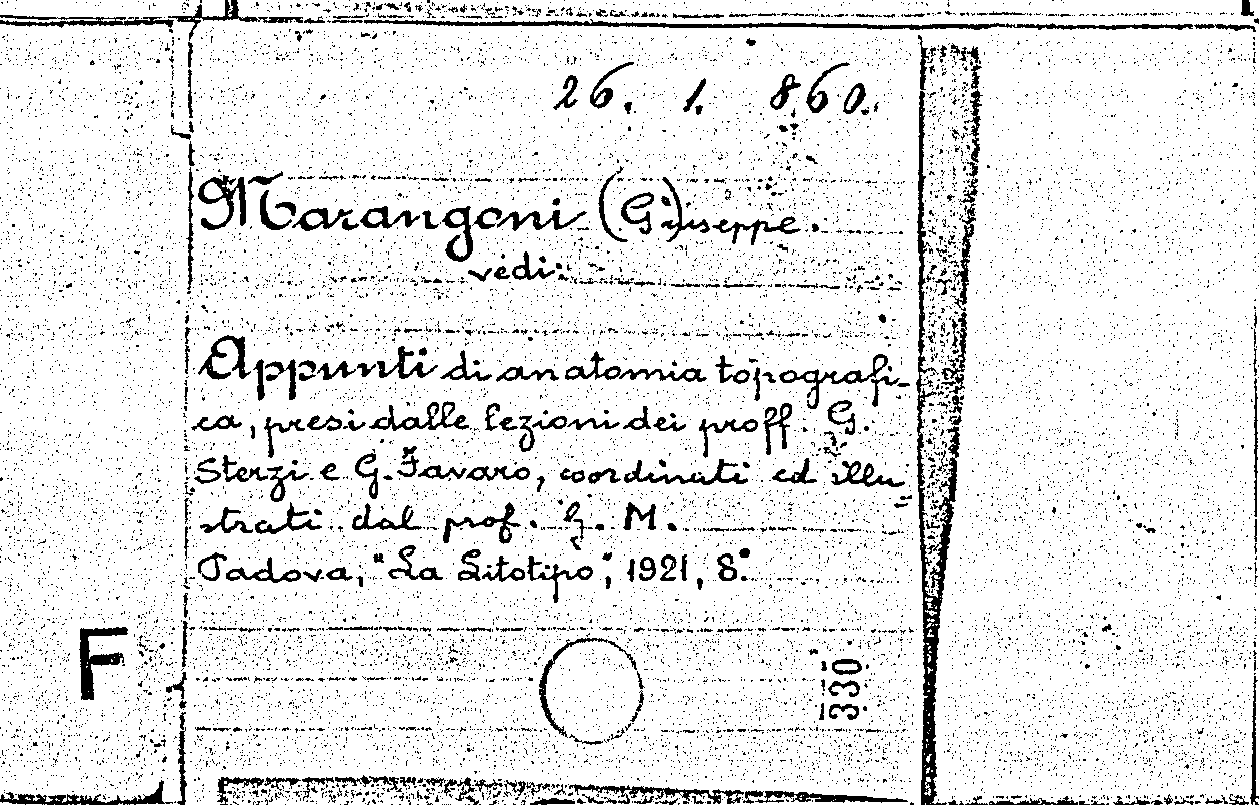 26. 1. 860.
Marangoni (G)iuseppe.
vedi:
Appunti di anatomia topografi-
ca, presi dalle lezioni dei proff. G.
Sterzi e G. Favaro, coordinati ed illu-
strati dal prof. G. M.
Padova, "La Litotipo", 1921, 8°.
F
330